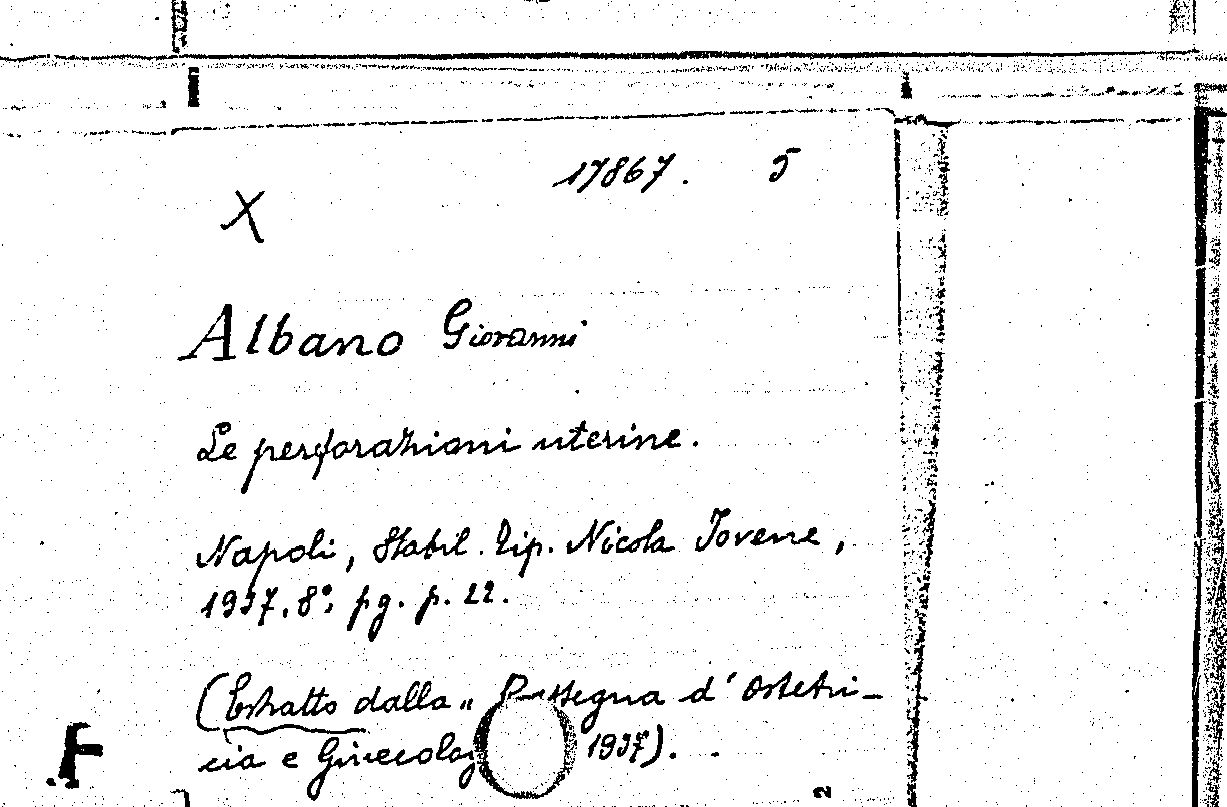 17867. 5
X
Albano Giovanni
Le perforazioni uterine.
Napoli, Stabil. Tip. Nicola Jovene,
1937. 8°; pg. p. 22.
(Estratto dalla „ Rassegna d' Ostetri-
cia e Ginecolog 1937).
F
2